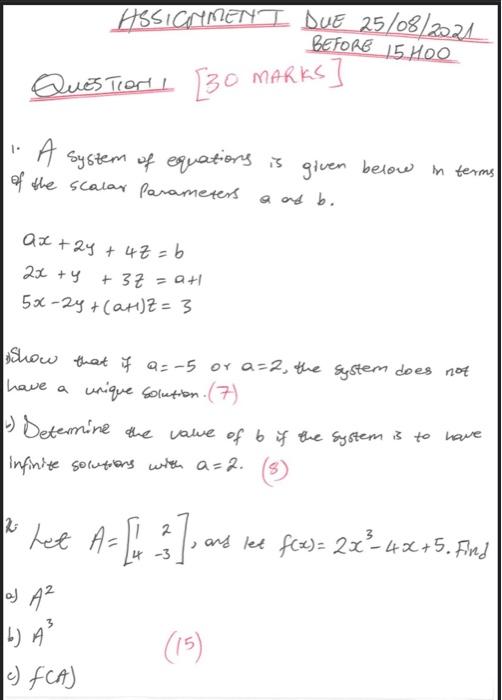 ASSIGNMENT DUE 25/08/2021
BEFORE 15H00
QUESTION 1 [30 MARKS]
1. A system of equations is given below in terms
of the scalar parameters a and b.
ax + 2y + 4z = b
2x + y + 3z = a+1
5x - 2y + (a+1)z = 3
a) Show that if a = -5 or a = 2, the system does not
have a unique solution. (7)
b) Determine the value of b if the system is to have
infinite solutions with a = 2. (8)
2. Let A = [1 2
4 -3], and let f(x) = 2x³ - 4x + 5. Find
a) A²
b) A³
(15)
c) f(A)